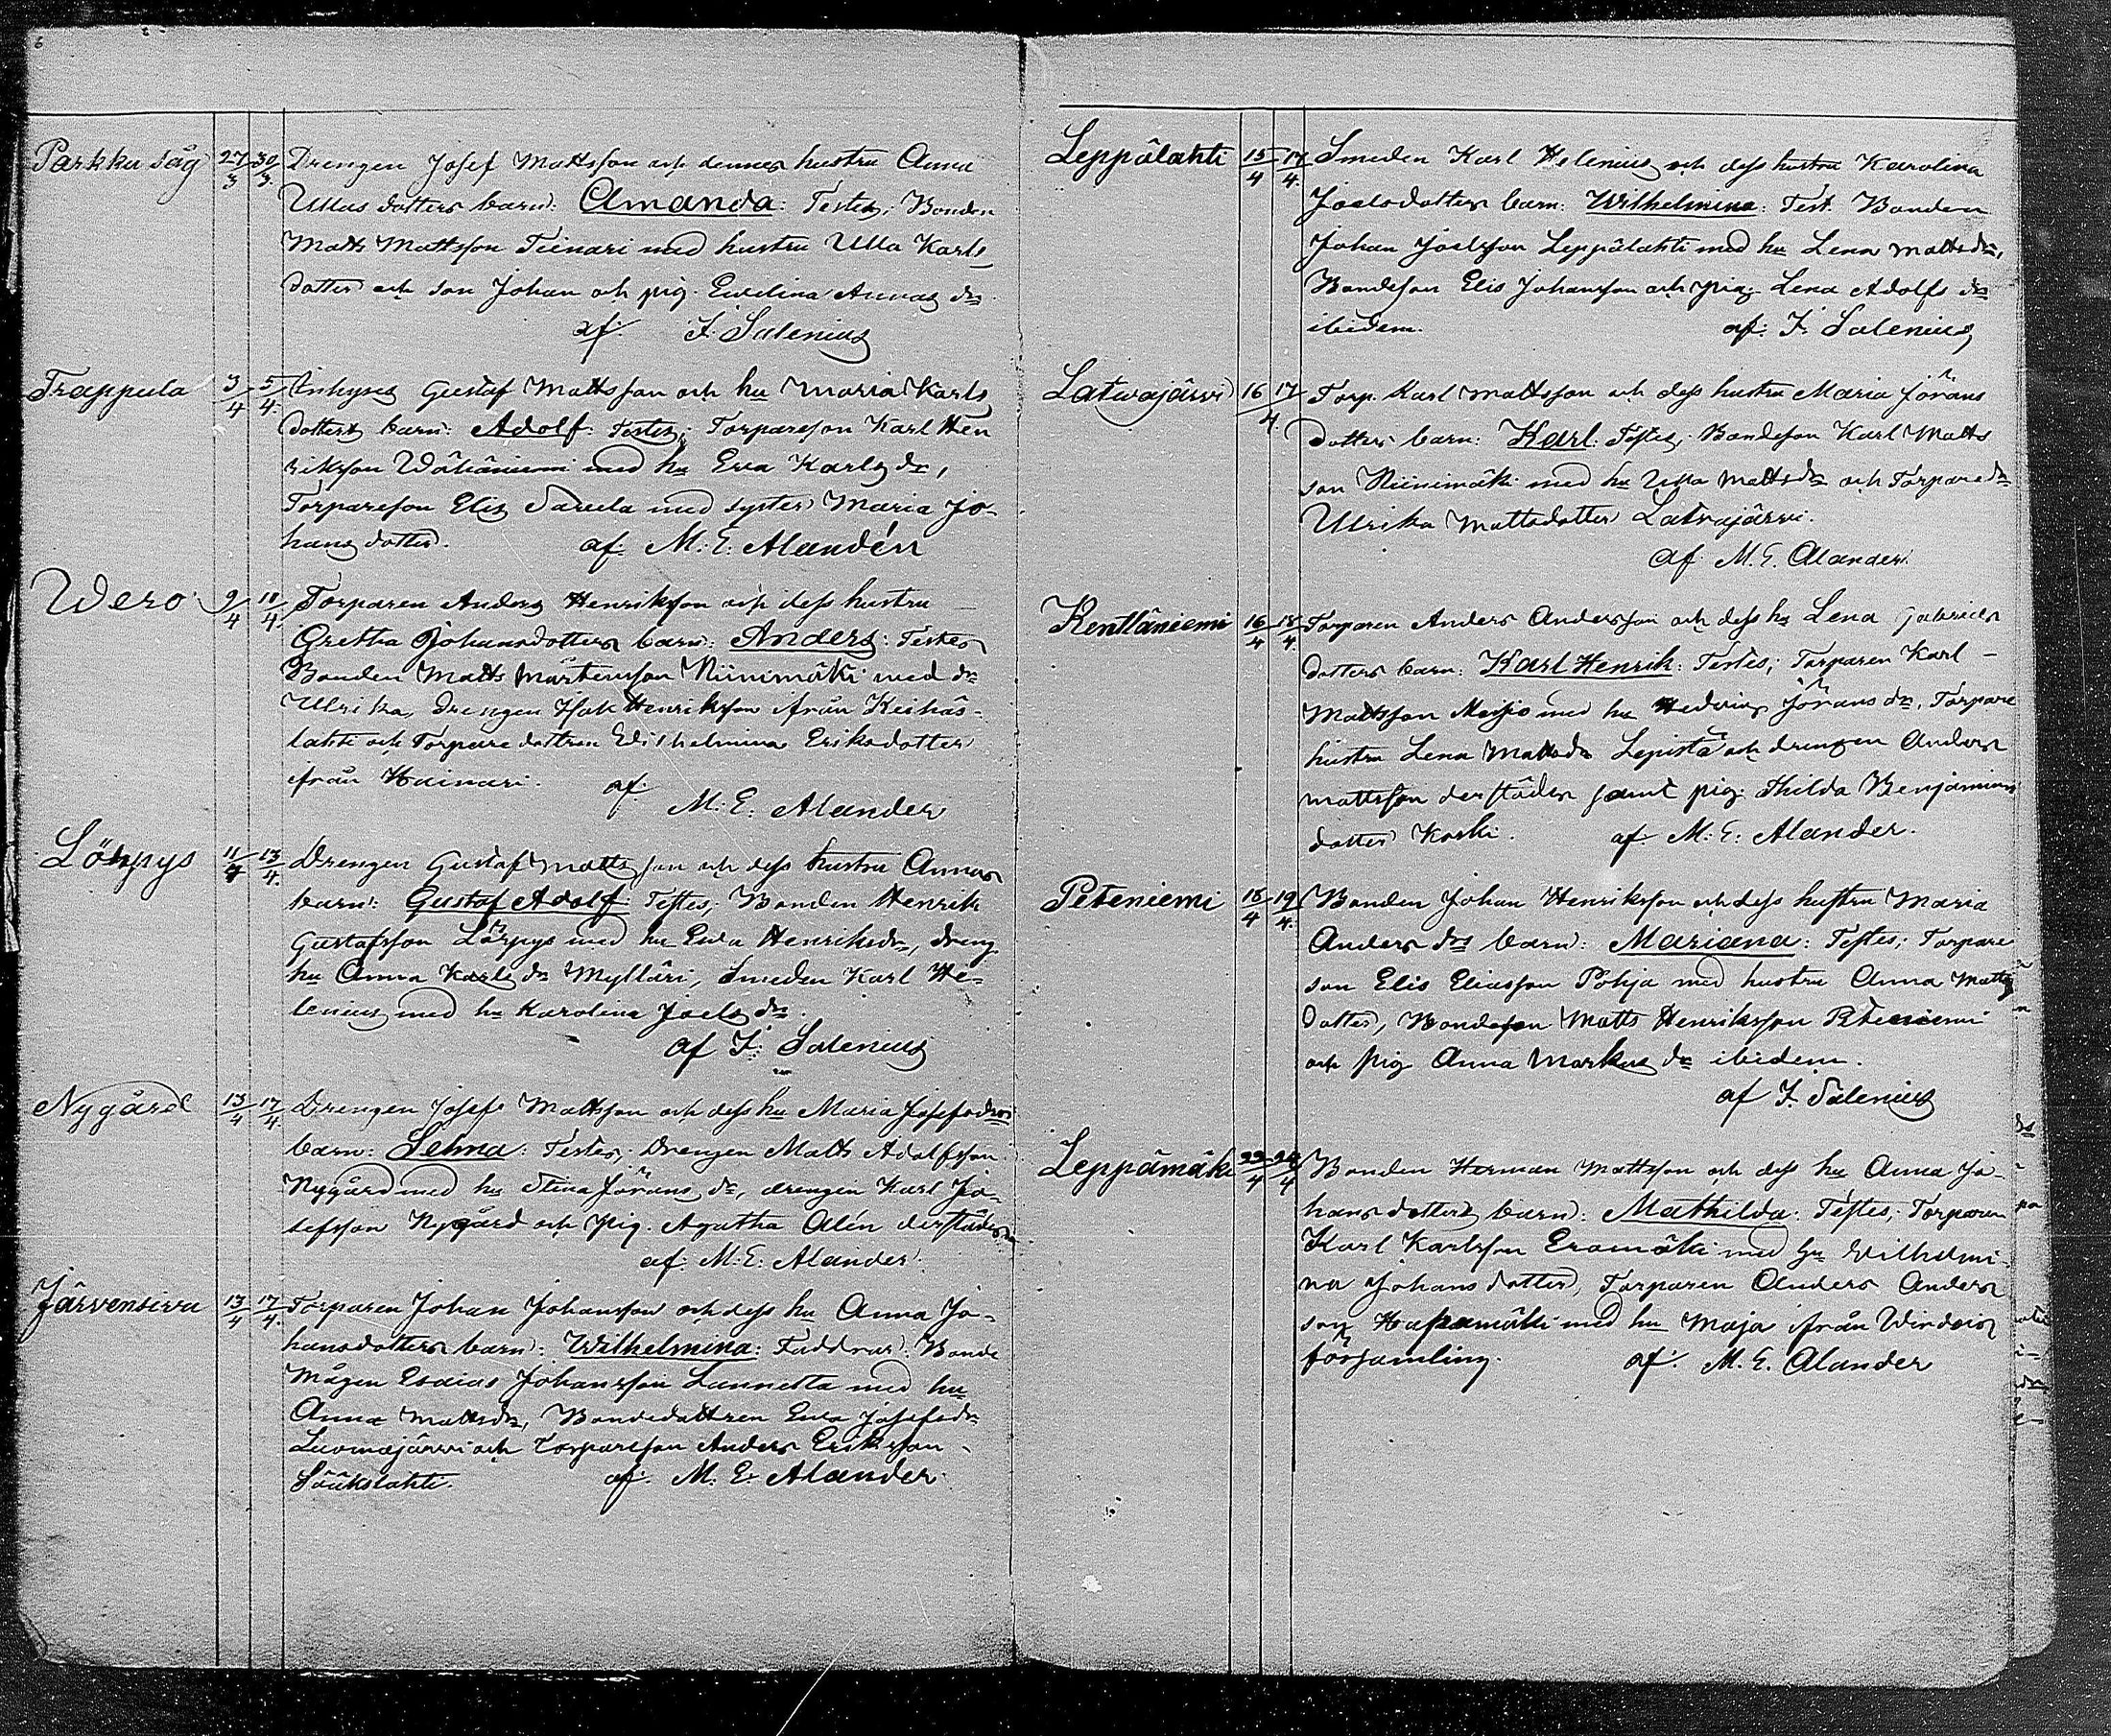 Parkku såg 27/3 30/3. Drengen Josef Mattsson och dennes hustru Anna
Ullas dotters barn: Amanda: Testes; Bonden
Matts Mattsson Teinari med hustru Ulla Karls
dotter och son Johan och pig. Evelina Annas dr
af. F. Salenius
Trappula 3/4 5/4. Inhyses Gustaf Mattsson och hu Maria Karls
dotters barn: Adolf. Testes; Torpareson Karl Hen
riksson Wähäniemi med hu Eva Karls dr,
Torpareson Elis Saxela med syster Maria Jo-
hans dotter. af. M. E. Alandér
Wero 9/4 10/4. Torparen Anders Henriksson och dess hustru
Gretha Johansdotters barn: Anders: Testes
Bonden Matts Mårtensson Niinimäki med dr
Ulrika, Drengen Isak Henriksson ifrån Keihäs-
lahti och Torpare dottren Wilhelmina Eriksdotter
ifrån Hainari. af.
M. E. Alander
Lörpys 11/4 13/4. Drengen Gustaf Mattsson och dess hustru Annas
barn: Gustaf Adolf: Testes; Bonden Henrik
Gustafsson Lörpys med hu Eva Henriksdr, dreng
hu Anna Karls dr Mylläri, Smeden Karl He-
lenius med hu Karolina Joels dr.
af F. Salenius
Nygård 13/4 17/4. Drengen Josef Mattsson och dess hu Maria Josefsdrs
barn: Selma: Testes, Drengen Matts Adolfsson
Nygård med hu Stina Jörans dr, drengen Karl Jo-
sefsson Nygård och pig. Agatha Alén derstädes
af. M. E. Alander.
Järvensivu 13/4 17/4. Torparen Johan Johansson och dess hu Anna Jo-
hansdotters barn: Wilhelmina: Faddrar: Bonde
mågen Esaias Johansson Lannetta med hu
Anna Mattsdr, Bondedottren Eva Josefsdr
Luomajärvi och Torpareson Anders Eriksson
Sääkslahti. af. M. E. Alander
Leppälahti 15/4 17/4. Smeden Karl Helenius och dess hustru Karolina
Joelsdotters barn: Wilhelmina: Test. Bonden
Johan Joelsson Leppälahti med hu Lena Mattsdr,
Bondeson Elis Johansson och pig. Lena Adolfs dr
ibidem. af. F. Salenius
Latvajärvi 16 17/4. Torp. Karl Mattsson och dess hustru Maria Jörans
dotters barn: Karl. Testes, Bondeson Karl Matts
son Niinimäki med hu Ulla Mattsdr och Torparedr
Ulrika Mattsdotter Latvajärvi.
af M. E. Alander.
Kentläniemi 16/4 18/4. Torparen Anders Andersson och dess hu Lena Gabriels
dotters barn: Karl Henrik: Testes; Torparen Karl
Mattsson Meijo med hu Hedvig Jörans dr, Torpare
hustru Lena Mattsdr Lepistä och drengen Anders
Mattsson derstädes samt pig. Thilda Benjamins
dotter Koski. af. M. E. Alander.
Peteniemi 18/4 19/4. Bonden Johan Henriksson och dess hustru Maria
Anders drs barn: Mariana: Testes; Torpare
son Elis Eliasson Pohja med hustru Anna Matts
dotter, Bondeson Matts Henriksson Peteniemi
och pig Anna Markus dr ibidem.
af F. Salenius
Leppämäki 22/4 24/4 Bonden Herman Mattsson och dess hu Anna Jo-
hans dotters barn: Mathilda: Testes; Torparen
Karl Karlsson Eromäki med hu Wilhelmi-
na Johans dotter, Torparen Anders Anders
son Hapamäki med hu Maja ifrån Wirdois
församling. af. M. E. Alander